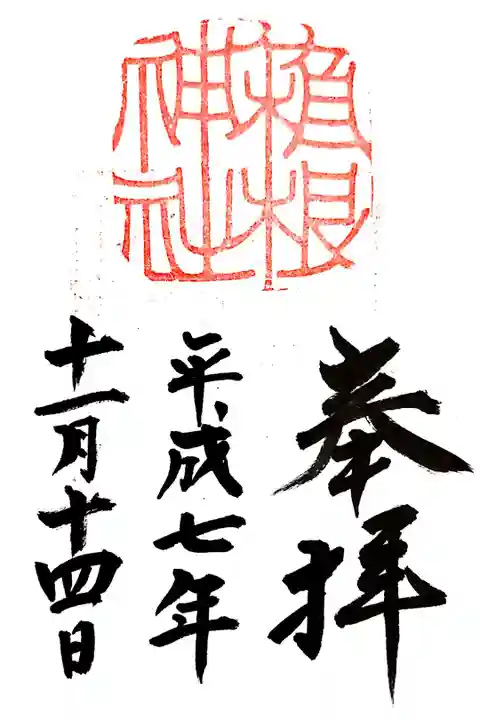 植根
神社
奉拝
平成七年
十一月十四日